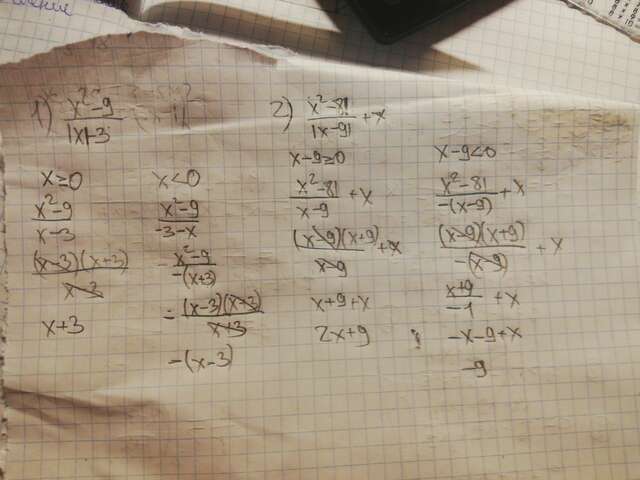 1) (x²-9)/(|x|-3)
x≥0
(x²-9)/(x-3)
((x-3)(x+3))/(x-3)
x+3
x<0
(x²-9)/(-3-x)
(x²-9)/(-(x+3))
=((x-3)(x+3))/(x+3)
-(x-3)
2) (x²-81)/(|x-9|)+x
x-9≥0
(x²-81)/(x-9)+x
((x-9)(x+9))/(x-9)+x
x+9+x
2x+9
x-9<0
(x²-81)/(-(x-9))+x
((x-9)(x+9))/(-(x-9))+x
(x+9)/(-1)+x
-x-9+x
-9